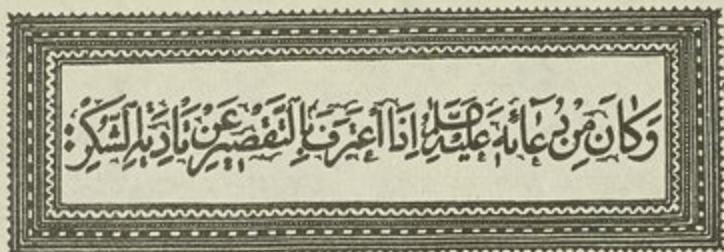 وَكَانَ مِنْ دُعَائِهِ عَلَيْهِ السَّلَمُ اِذَا اعْتَرَفَ بِالتَّقْصِيرِ عَنْ تَادِيَةِ الشُّكْرِ: